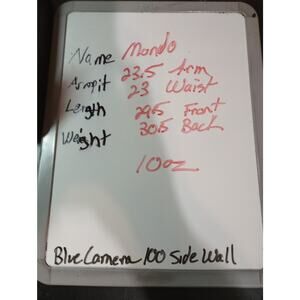 Name Mando
Armpit 23.5 Arm
23 Waist
Length 29.5 Front
30.5 Back
Weight
10oz
Blue Camera 100 Side Wall